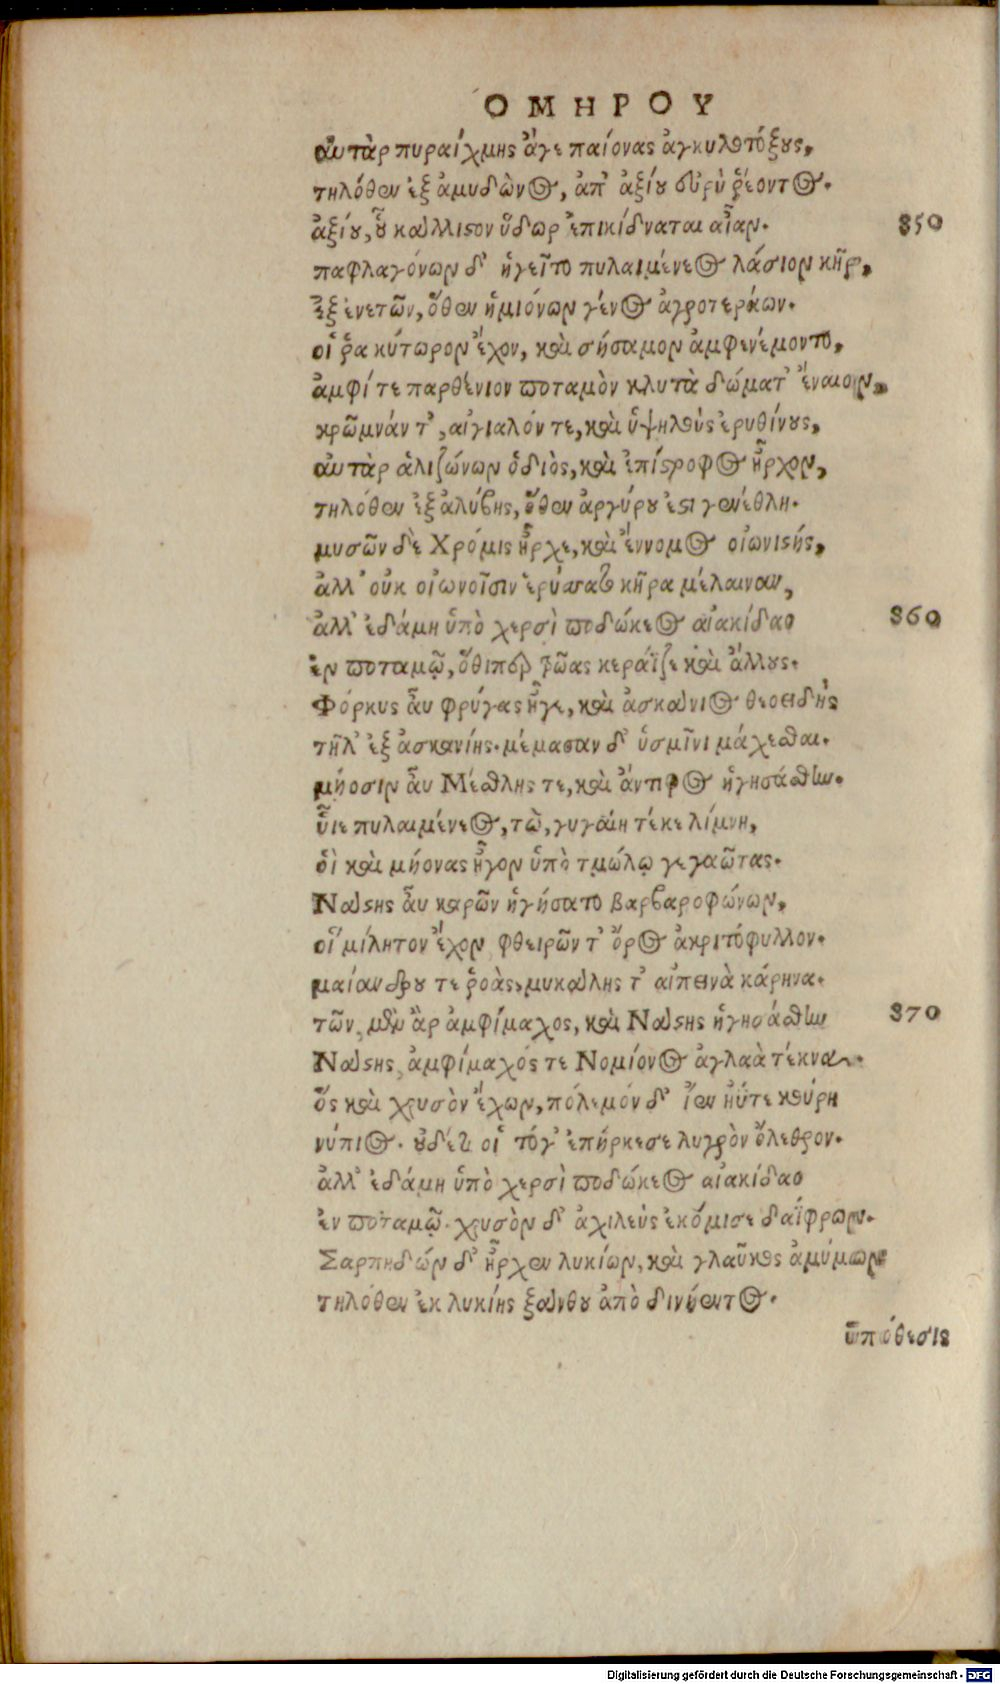 ΟΜΗΡΟΥ
αὐτὰρ πυραίχμης ἄγε παίονας ἀγκυλοτόξους,
τηλόθεν ἐξ ἀμυδῶνος, ἀπ' ἀξίου εὐρὺ ῥέοντος.
ἀξίου, οὗ κάλλιστον ὕδωρ ἐπικίδναται αἶαν. 850
παφλαγόνων δ' ἡγεῖτο πυλαιμένεος λάσιον κῆρ,
ἐξ ἐνετῶν, ὅθεν ἡμιόνων γένος ἀγροτεράων.
οἵ ῥα κύτωρον ἔχον, καὶ σήσαμον ἀμφενέμοντο,
ἀμφί τε παρθένιον ποταμὸν κλυτὰ δώματ' ἔναιον,
κρῶμνάν τ', αἰγιαλόν τε, καὶ ὑψηλοὺς ἐρυθίνους,
αὐτὰρ ἁλιζώνων ὁδιὸς, καὶ ἐπίστροφος ἦρχον,
τηλόθεν ἐξ ἀλύβης, ὅθεν ἀργύρου ἐστὶ γενέθλη.
μυσῶν δὲ Χρόμις ἦρχε, καὶ ἔννομος οἰωνιστής,
ἀλλ' οὐκ οἰωνοῖσιν ἐρύσατο κῆρα μέλαιναν,
ἀλλ' ἐδάμη ὑπὸ χερσὶ ποδώκεος αἰακίδαο 860
ἐν ποταμῷ, ὅθιπερ τρῶας κεράϊζε καὶ ἄλλους.
Φόρκυς αὖ φρύγας ἦγε, καὶ ἀσκάνιος θεοειδὴς
τῆλ' ἐξ ἀσκανίης. μέμασαν δ' ὑσμῖνι μάχεσθαι.
μῄοσιν αὖ Μέσθλης τε, καὶ ἄντιφος ἡγησάσθην.
υἷε πυλαιμένεος, τὼ, γυγαίη τέκε λίμνη,
οἳ καὶ μῄονας ἦγον ὑπὸ τμώλῳ γεγαῶτας.
Νάστης αὖ καρῶν ἡγήσατο βαρβαροφώνων,
οἳ μίλητον ἔχον φθειρῶν τ' ὄρος ἀκριτόφυλλον.
μαίανδρου τε ῥοὰς, μυκάλης τ' αἰπεινὰ κάρηνα.
τῶν μὲν ἂρ ἀμφίμαχος, καὶ Νάστης ἡγησάσθην 870
Νάστης, ἀμφίμαχός τε Νομίονος ἀγλαὰ τέκνα.
ὃς καὶ χρυσὸν ἔχων, πόλεμόν δ' ἴεν ἠΰτε κούρη
νύπιος. οὐδέ τι οἱ τόγ' ἐπήρκεσε λυγρὸν ὄλεθρον.
ἀλλ' ἐδάμη ὑπὸ χερσὶ ποδώκεος αἰακίδαο
ἐν ποταμῷ. χρυσὸν δ' ἀχιλεὺς ἐκόμισε δαΐφρων.
Σαρπηδών δ' ἦρχεν λυκίων, καὶ γλαῦκος ἀμύμων
τηλόθεν ἐκ λυκίης ξάνθου ἀπὸ δινήεντος.
ὑπόθεσις
Digitalisierung gefördert durch die Deutsche Forschungsgemeinschaft - DFG